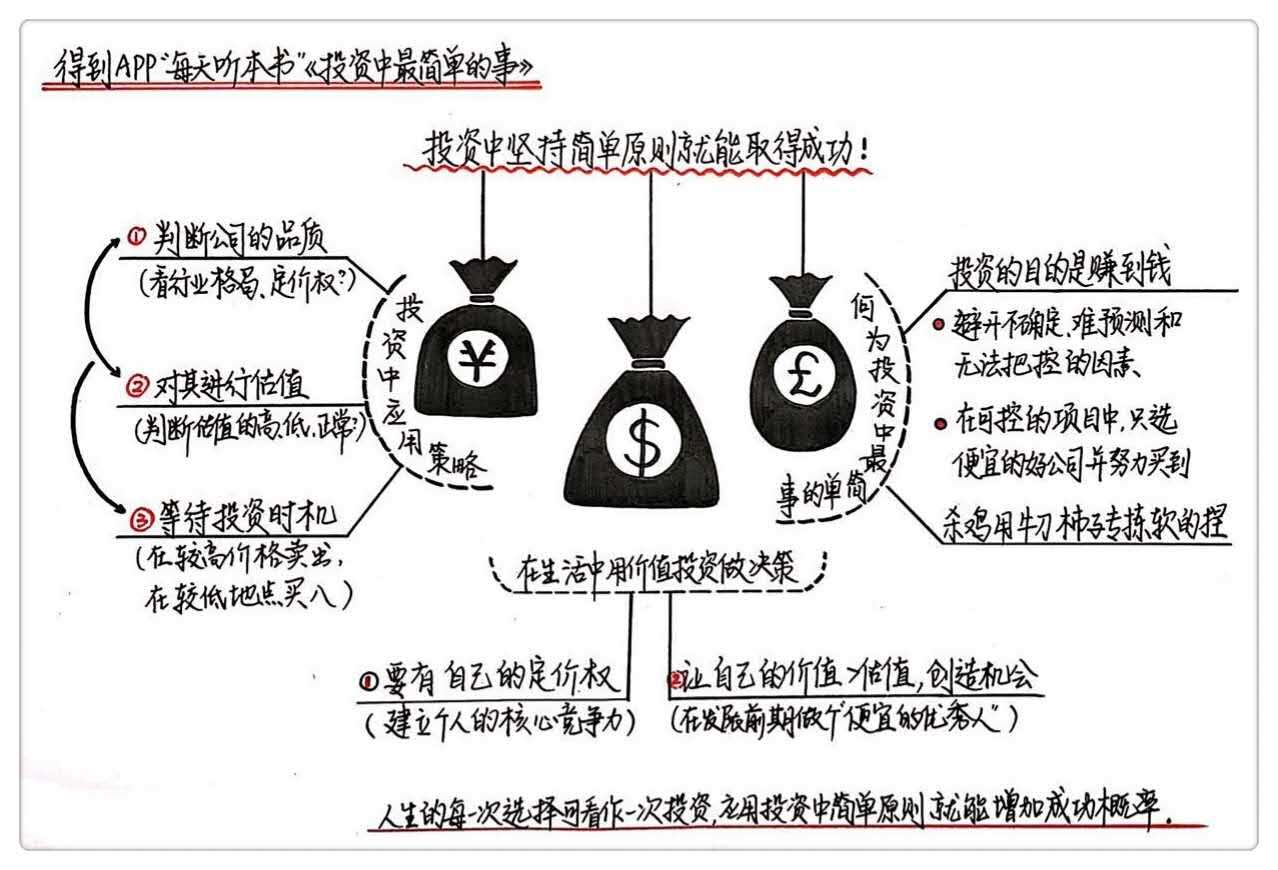 得到APP“每天听本书”《投资中最简单的事》
投资中坚持简单原则就能取得成功！
①判断公司的品质
（看行业格局、定价权？）
②对其进行估值
（判断估值的高、低、正常？）
③等待投资时机
（在较高价格卖出，
在较低地点买入）
投资中应用策略
¥
$
£
何为投资中最
事的单简
投资的目的是赚到钱
• 避开不确定、难预测和
无法把控的因素、
• 在可控的项目中，只选
便宜的好公司并努力买到
杀鸡用牛刀 柿子专拣软的捏
在生活中用价值投资做决策
①要有自己的定价权
（建立个人的核心竞争力）
②让自己的价值>估值，创造机会
（在发展前期做个“便宜的优秀人”）
人生的每一次选择可看作一次投资，应用投资中简单原则就能增加成功概率.